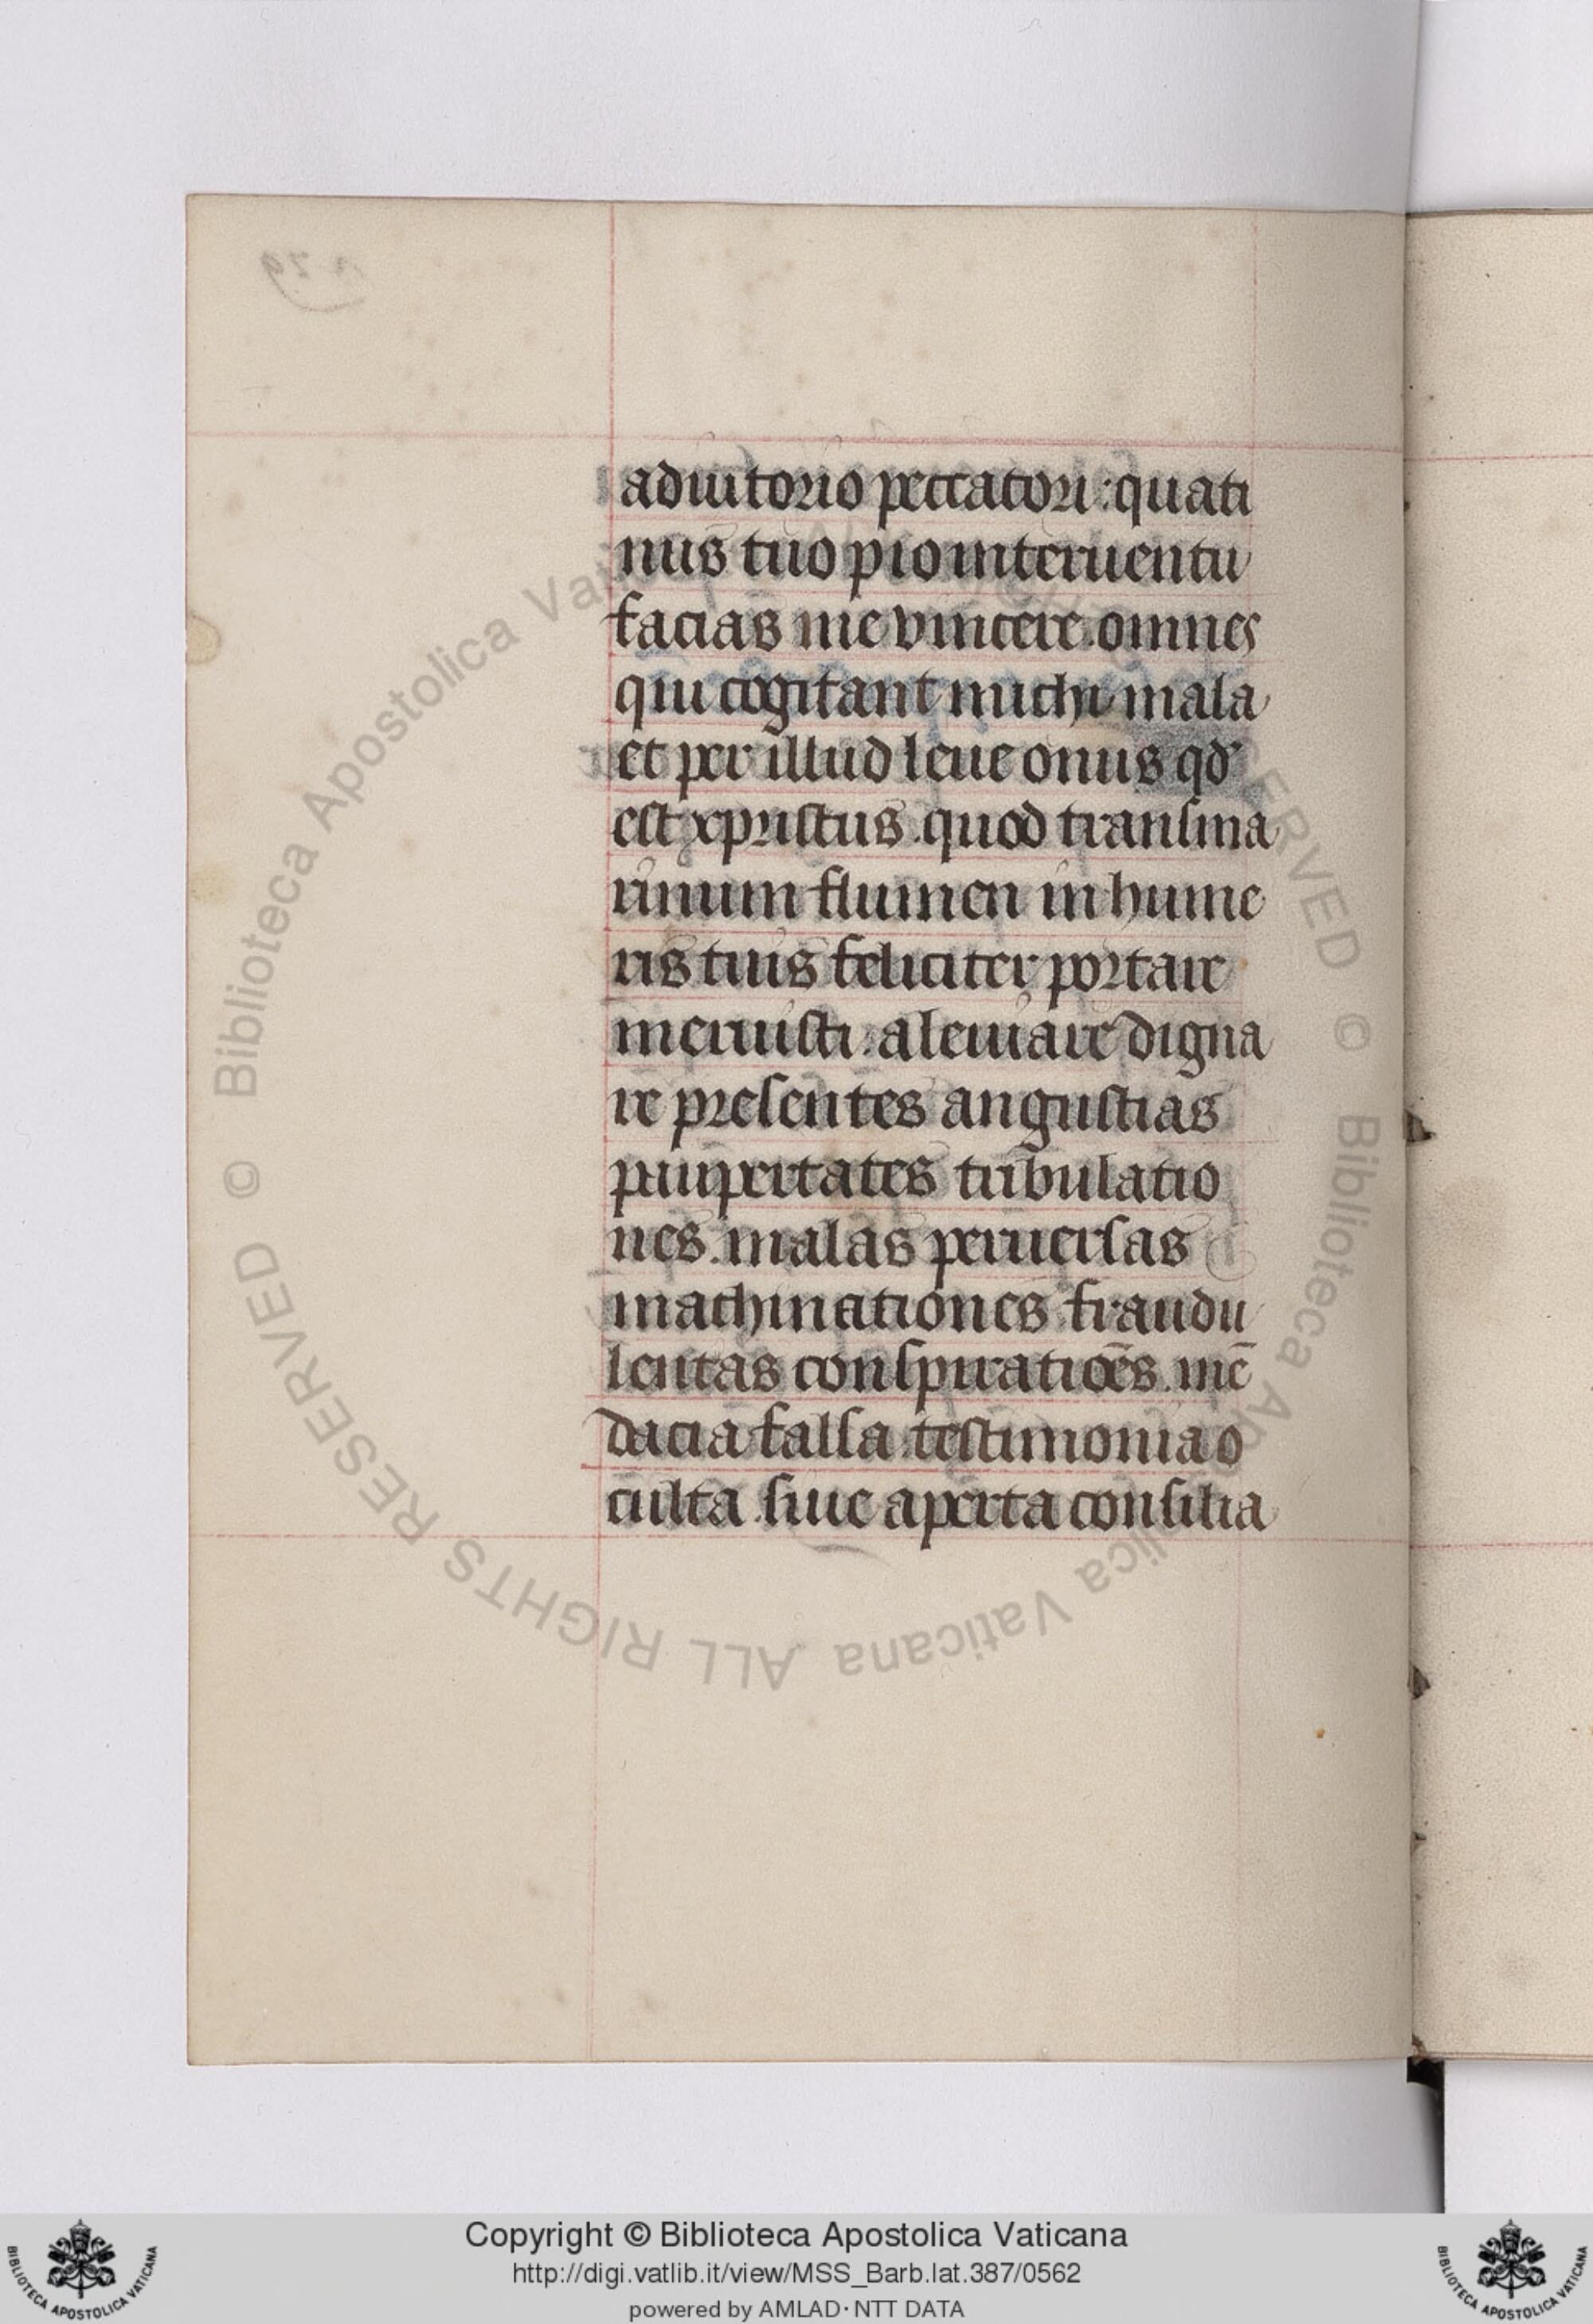 adiutorio peccatori: quati
nus tuo pio interuentu
facias me vincere. omnes
qui cogitant michi mala
et per illud leue onus qd'
est xpristus. quod transma
rinum flumen in hume
ris tuis feliciter portare
meruisti. aleuiare digna
re presentes angustias
paupertates tribulatio
nes. malas peruersas
machinationes. fraudu
lentas conspiratiões. mē
dacia falsa. testimonia o
culta. siue aperta consilia
© Biblioteca Apostolica Vaticana ALL RIGHTS RESERVED © Biblioteca Apostolica Vaticana ALL RIGHTS RESERVED
Copyright © Biblioteca Apostolica Vaticana
http://digi.vatlib.it/view/MSS_Barb.lat.387/0562
powered by AMLAD · NTT DATA
BIBLIOTECA APOSTOLICA VATICANA
BIBLIOTECA APOSTOLICA VATICANA